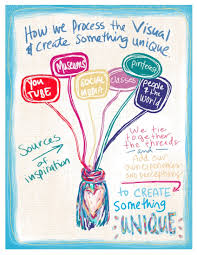 How we Process the Visual
& Create Something unique.
Museums
pinterest
YOU
TUBE
SOCIAL
MEDIA
classes
people &
the
World
Sources
of
inspiration
We tie
together
the threads
and
Add our
own experiences
and perceptions
to CREATE
something
UNIQUE